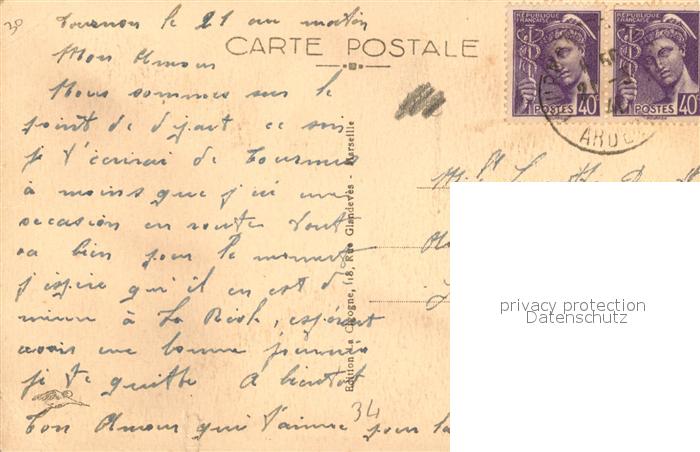 Tournon le 21 au matin
Mon Amour
CARTE POSTALE
Nous sommes sur le
point de départ ce soir
je t'écrirai de Tournus
à moins que j'ai une
occasion en route Tout
va bien pour le moment
j'espère qu'il en est de
même à La Réole, espérant
avoir une bonne journée
je te quitte A bientôt
Ton Amour qui t'aime pour la
RÉPUBLIQUE FRANÇAISE
POSTES 40c
RÉPUBLIQUE FRANÇAISE
POSTES 40c
Edition La Cigogne, 118, Rue Glandevès - Marseille
privacy protection
Datenschutz
34